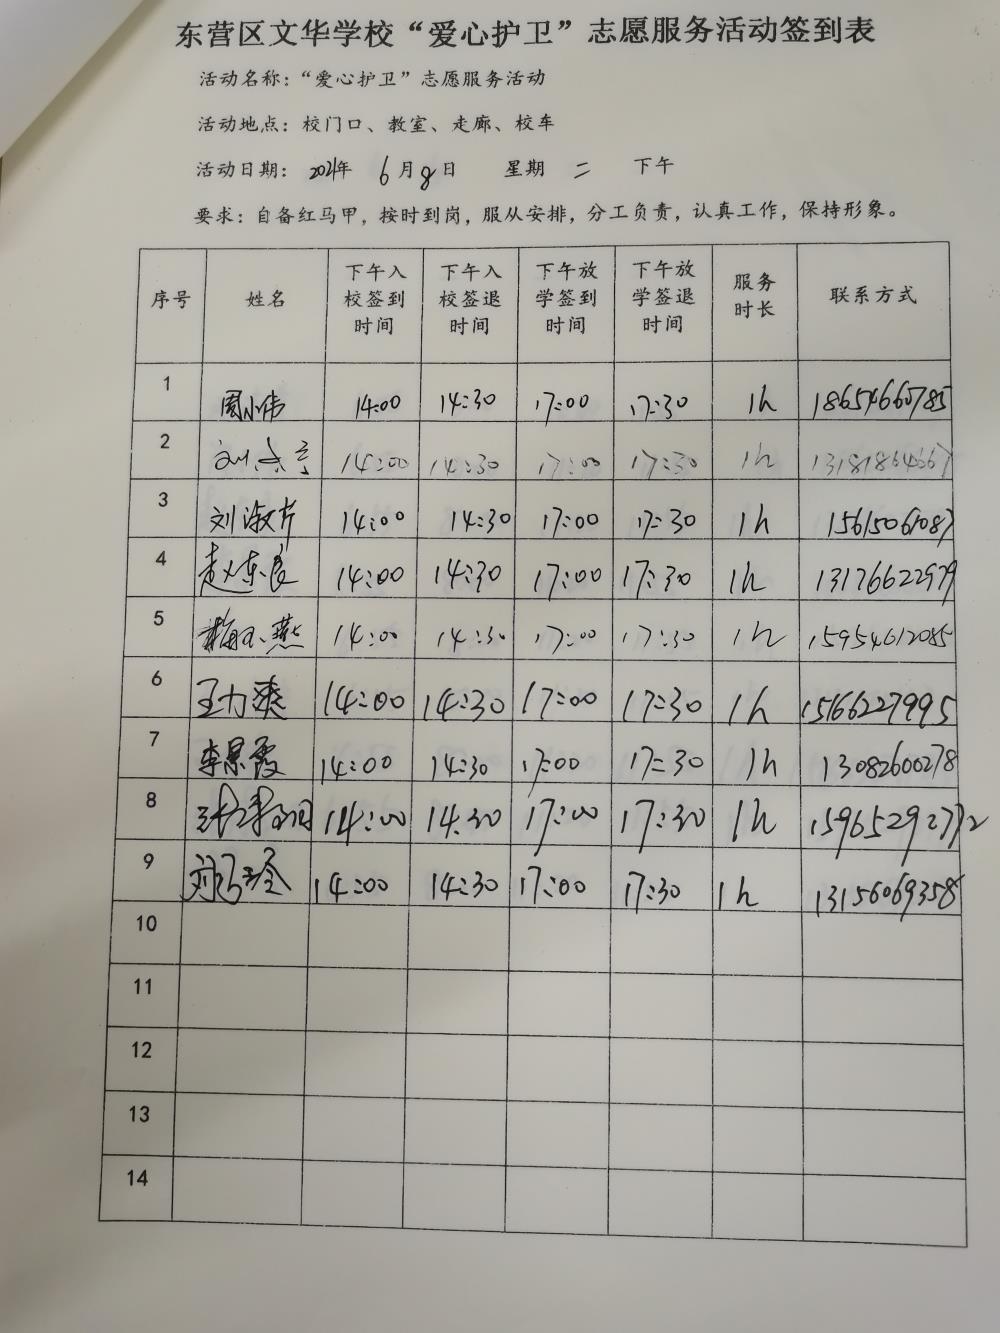 东营区文华学校“爱心护卫”志愿服务活动签到表
活动名称：“爱心护卫”志愿服务活动
活动地点：校门口、教室、走廊、校车
活动日期： 2021年 6月8日 星期 二 下午
要求：自备红马甲，按时到岗，服从安排，分工负责，认真工作，保持形象。
序号 姓名 下午入校签到时间 下午入校签退时间 下午放学签到时间 下午放学签退时间 服务时长 联系方式
1 周小伟 14:00 14:30 17:00 17:30 1h 18654660785
2 14:00 14:30 17:00 17:30 1h
3 刘淑芹 14:00 14:30 17:00 17:30 1h
4 赵东良 14:00 14:30 17:00 17:30 1h 13176622979
5 14:00 14:30 17:00 17:30 1h 15954612085
6 王力爽 14:00 14:30 17:00 17:30 1h 15166227995
7 李景霞 14:00 14:30 17:00 17:30 1h 13082600278
8 14:00 14:30 17:00 17:30 1h 15965292772
9 14:00 14:30 17:00 17:30 1h 13156069358
10
11
12
13
14